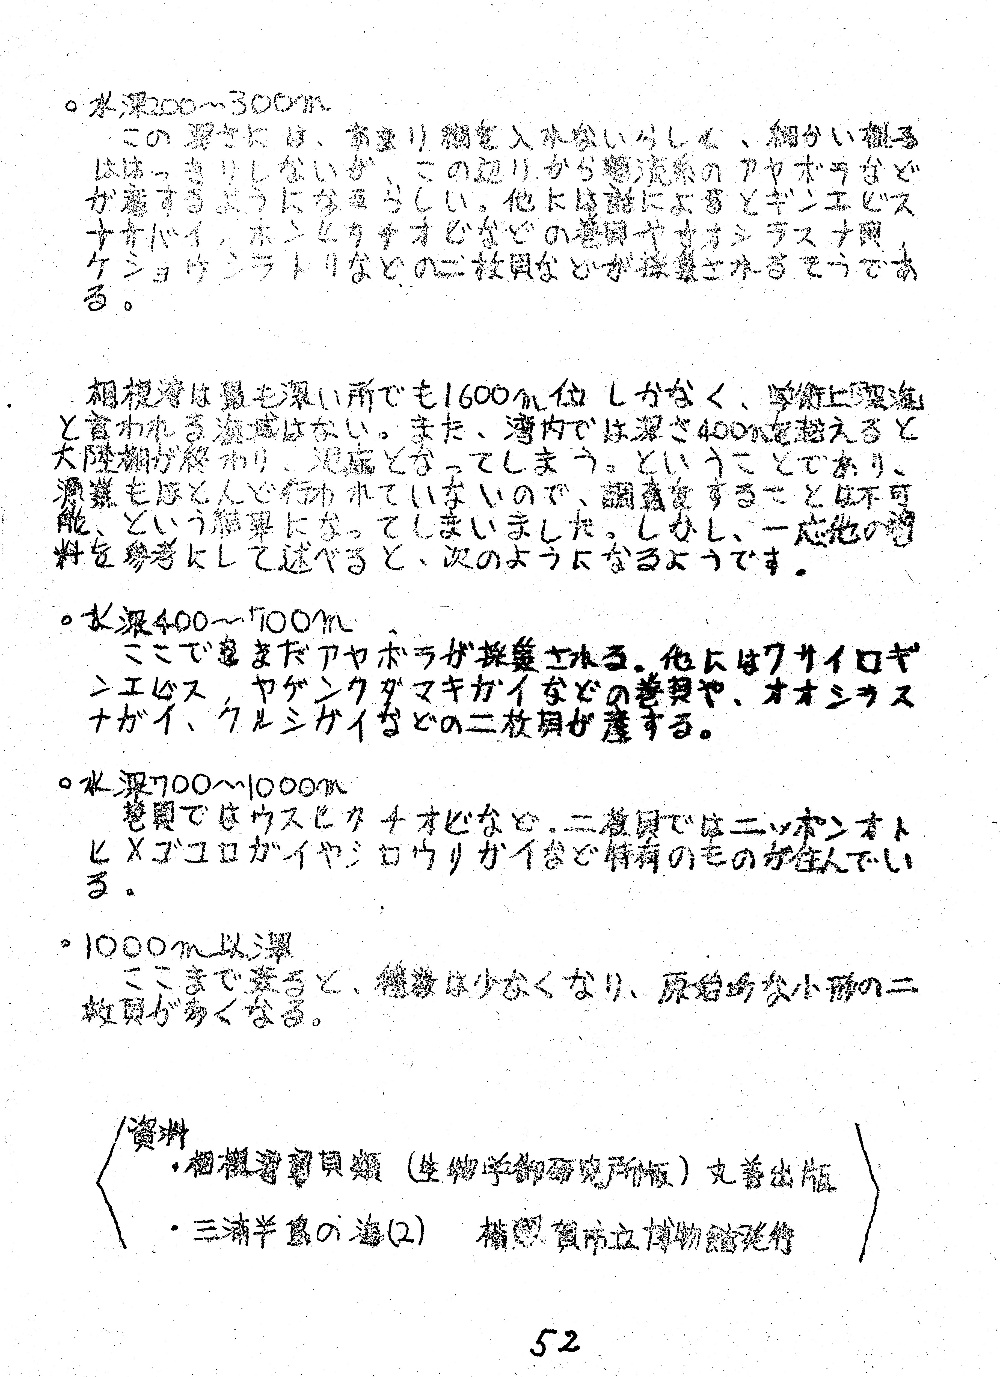 ○水深200〜300m
この深さには、あまり網を入れないらしく、細かい
ははっきりしないが、この辺りから寒流系のアヤボラなど
が産するようになるらしい。他には話によるとギンエビス
ナサバイ、ホンヒタチオビなどの巻貝やオオシラスナ貝、
ケショウシラトリなどの二枚貝などが採集されるそうであ
る。
相模湾は最も深い所でも1600m位しかなく、学術上深海
と言われる海域はない。また、湾内では深さ400mを越えると
大陸棚が終わり、泥底となってしまう。ということであり、
漁業もほとんど行われていないので、調査をすることは不可
能、という結果になってしまいました。しかし、一応他の資
料を参考にして述べると、次のようになるようです。
○水深400〜700m
ここでもまだアヤボラが採集される。他にはワサイロギ
ンエビス、ヤゲンクダマキガイなどの巻貝や、オオシラス
ナガイ、クルシガイなどの二枚貝が産する。
○水深700〜1000m
巻貝ではウスヒタチオビなど、二枚貝ではニッポンオト
ヒメゴコロガイやシロウリガイなど特有のものが住んでい
る。
○1000m以深
ここまで来ると、種数は少なくなり、原始的な小形の二
枚貝が多くなる。
資料
・相模湾産貝類（生物学御研究所版）丸善出版
・三浦半島の海(2) 横須賀市立博物館発行
52